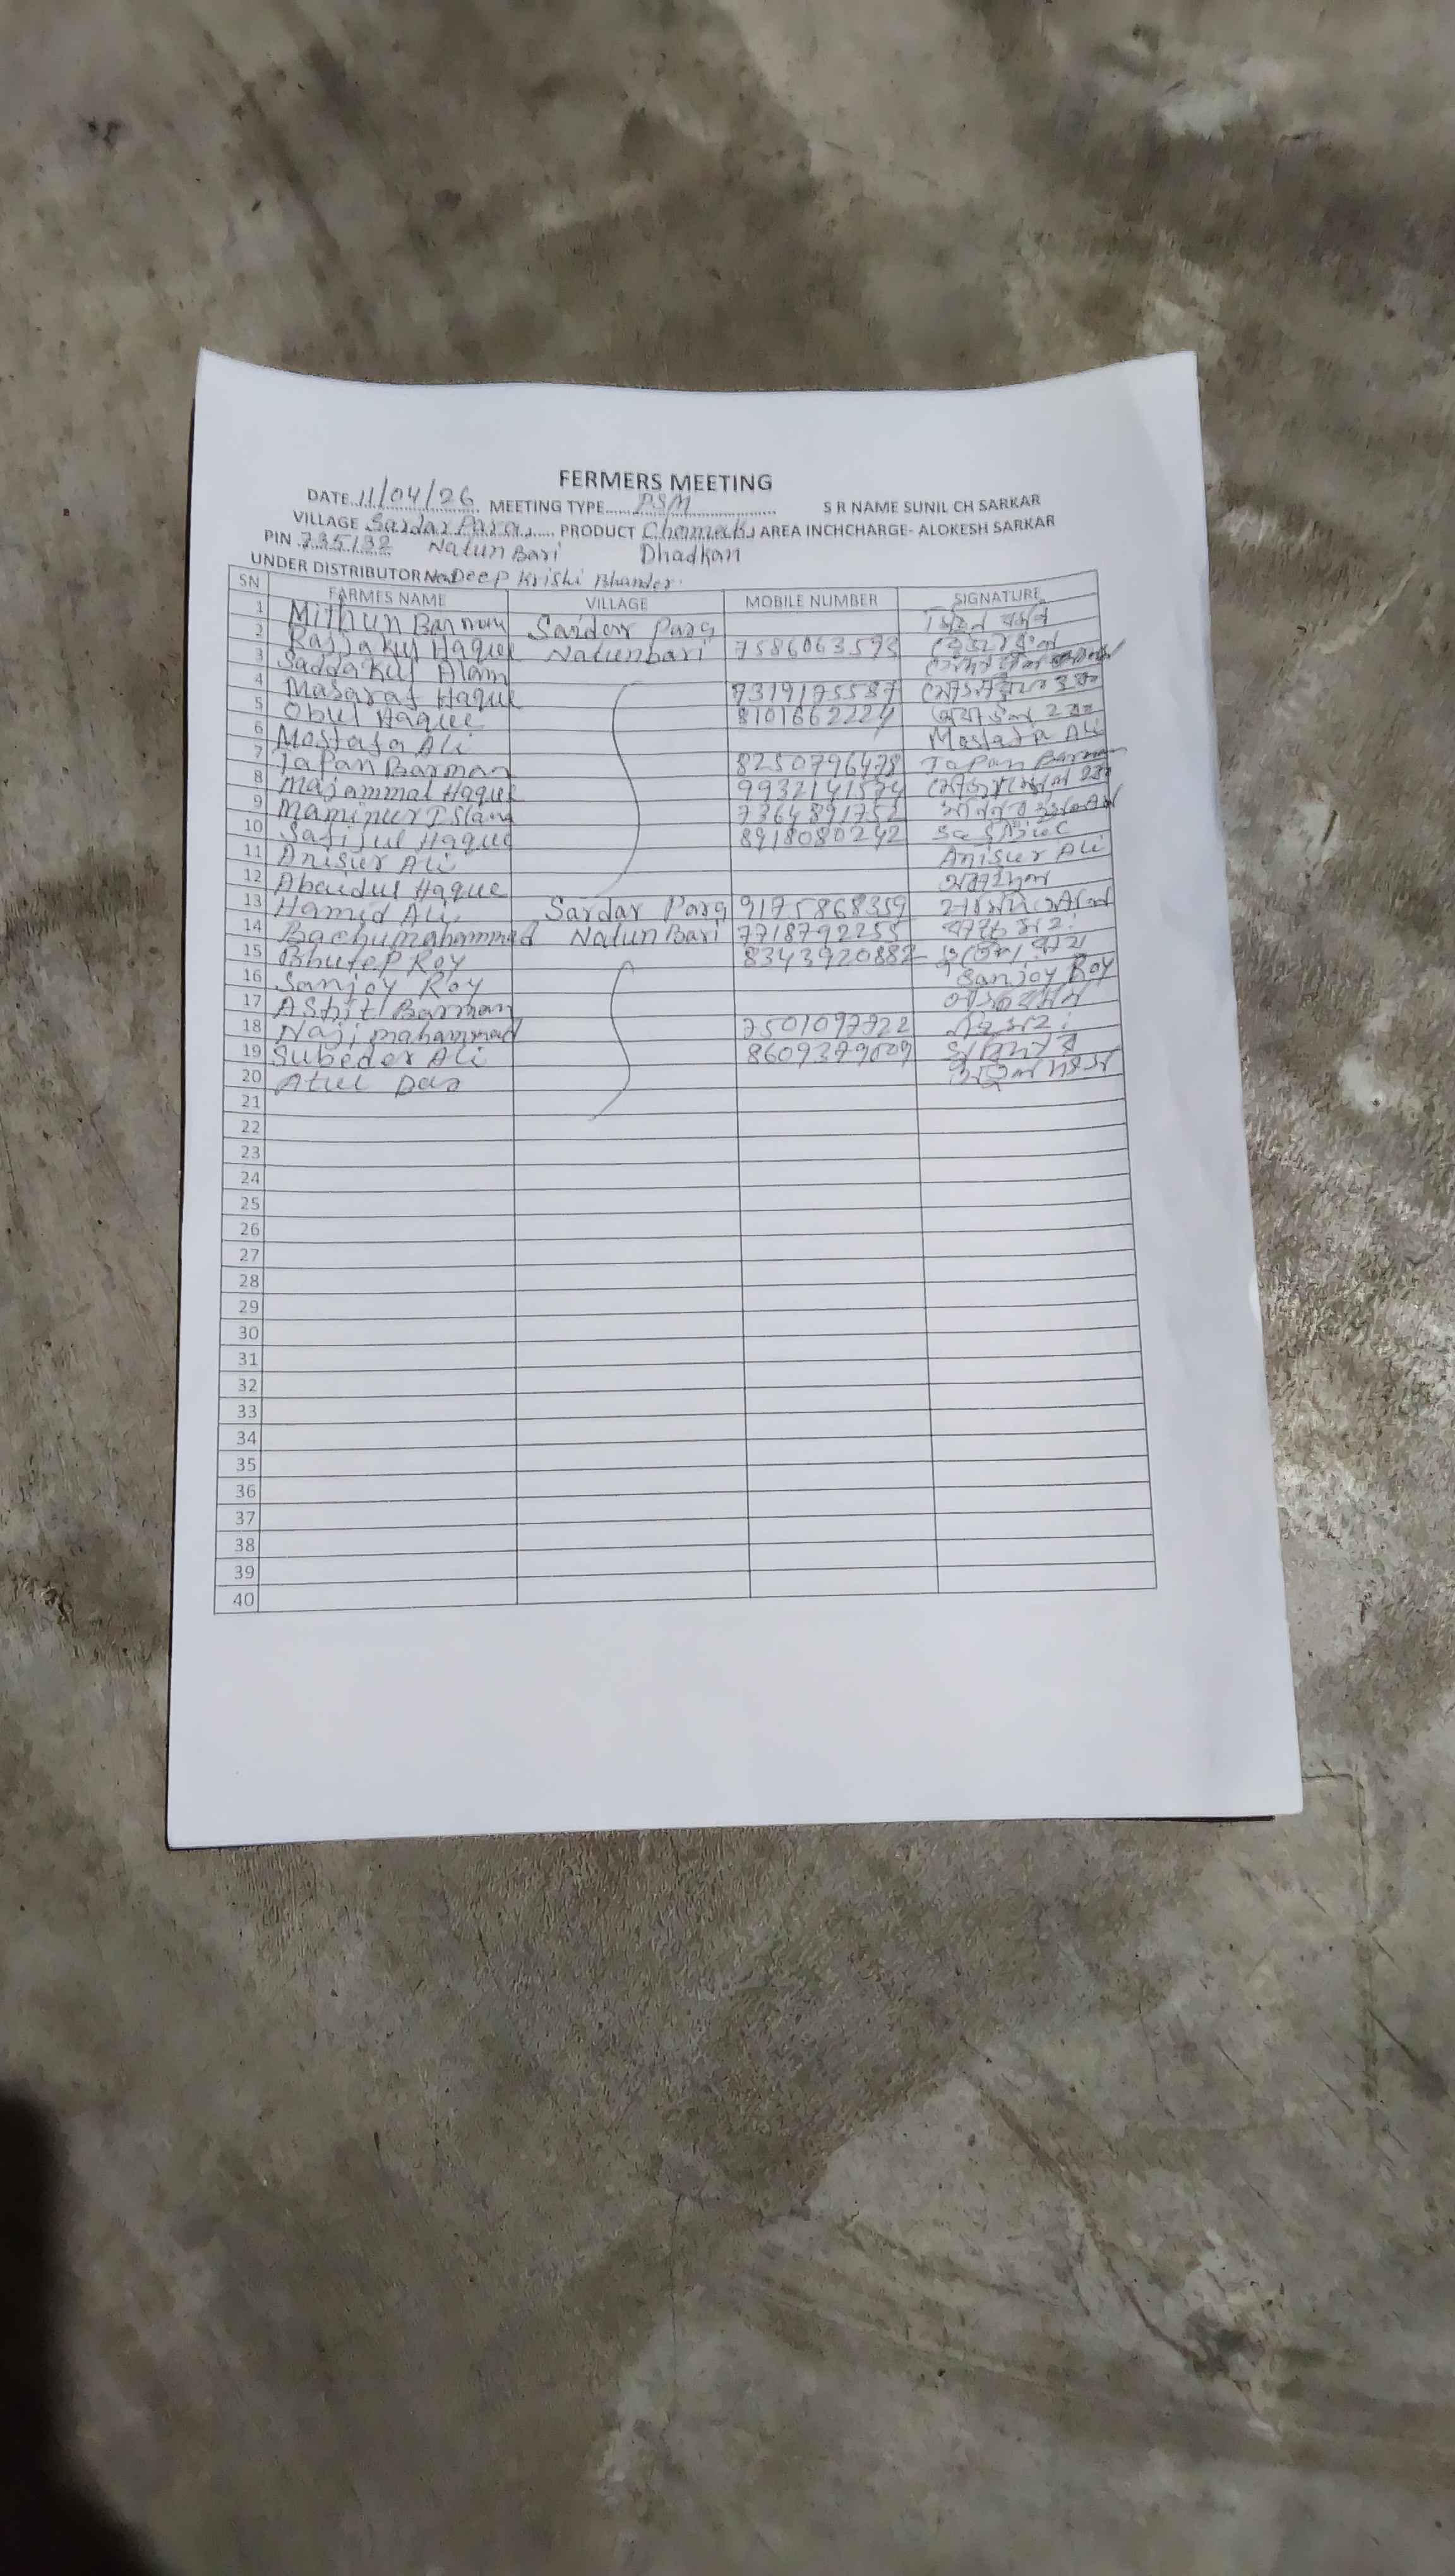 FERMERS MEETING
DATE 11/04/26 MEETING TYPE PSM S R NAME SUNIL CH SARKAR
VILLAGE Sardar Para, PRODUCT Chamak, AREA INCHCHARGE- ALOKESH SARKAR
PIN 735132 Natun Bari Dhadkan
UNDER DISTRIBUTOR Deep Krishi Bhander
SN FARMES NAME VILLAGE MOBILE NUMBER SIGNATURE
1 Mithun Barman Sardar Para মিঠুন বর্মন
2 Rajjakul Haque Natunbari 7586063593
3 Saddakul Alam
4 Masaraf Haque 7319175587
5 Obul Haque 8101662224
6 Mostafa Ali Mostafa Ali
7 Tapan Barman 8250796478 Tapan Barman
8 Majammal Haque 9932141574
9 Maminur Islam 7364891752
10 Safijul Haque 8918080242
11 Anisur Ali Anisur Ali
12 Abaidul Haque
13 Hamid Ali Sardar Para 9175868359
14 Bachu mahammad Natun Bari 7718792255
15 Bhutep Roy 8343920882
16 Sanjoy Roy Sanjoy Roy
17 Ashit Barman
18 Naji mahammad 7501097722
19 Subeder Ali 8609379009
20 Atul Das অতুল দাস
21
22
23
24
25
26
27
28
29
30
31
32
33
34
35
36
37
38
39
40